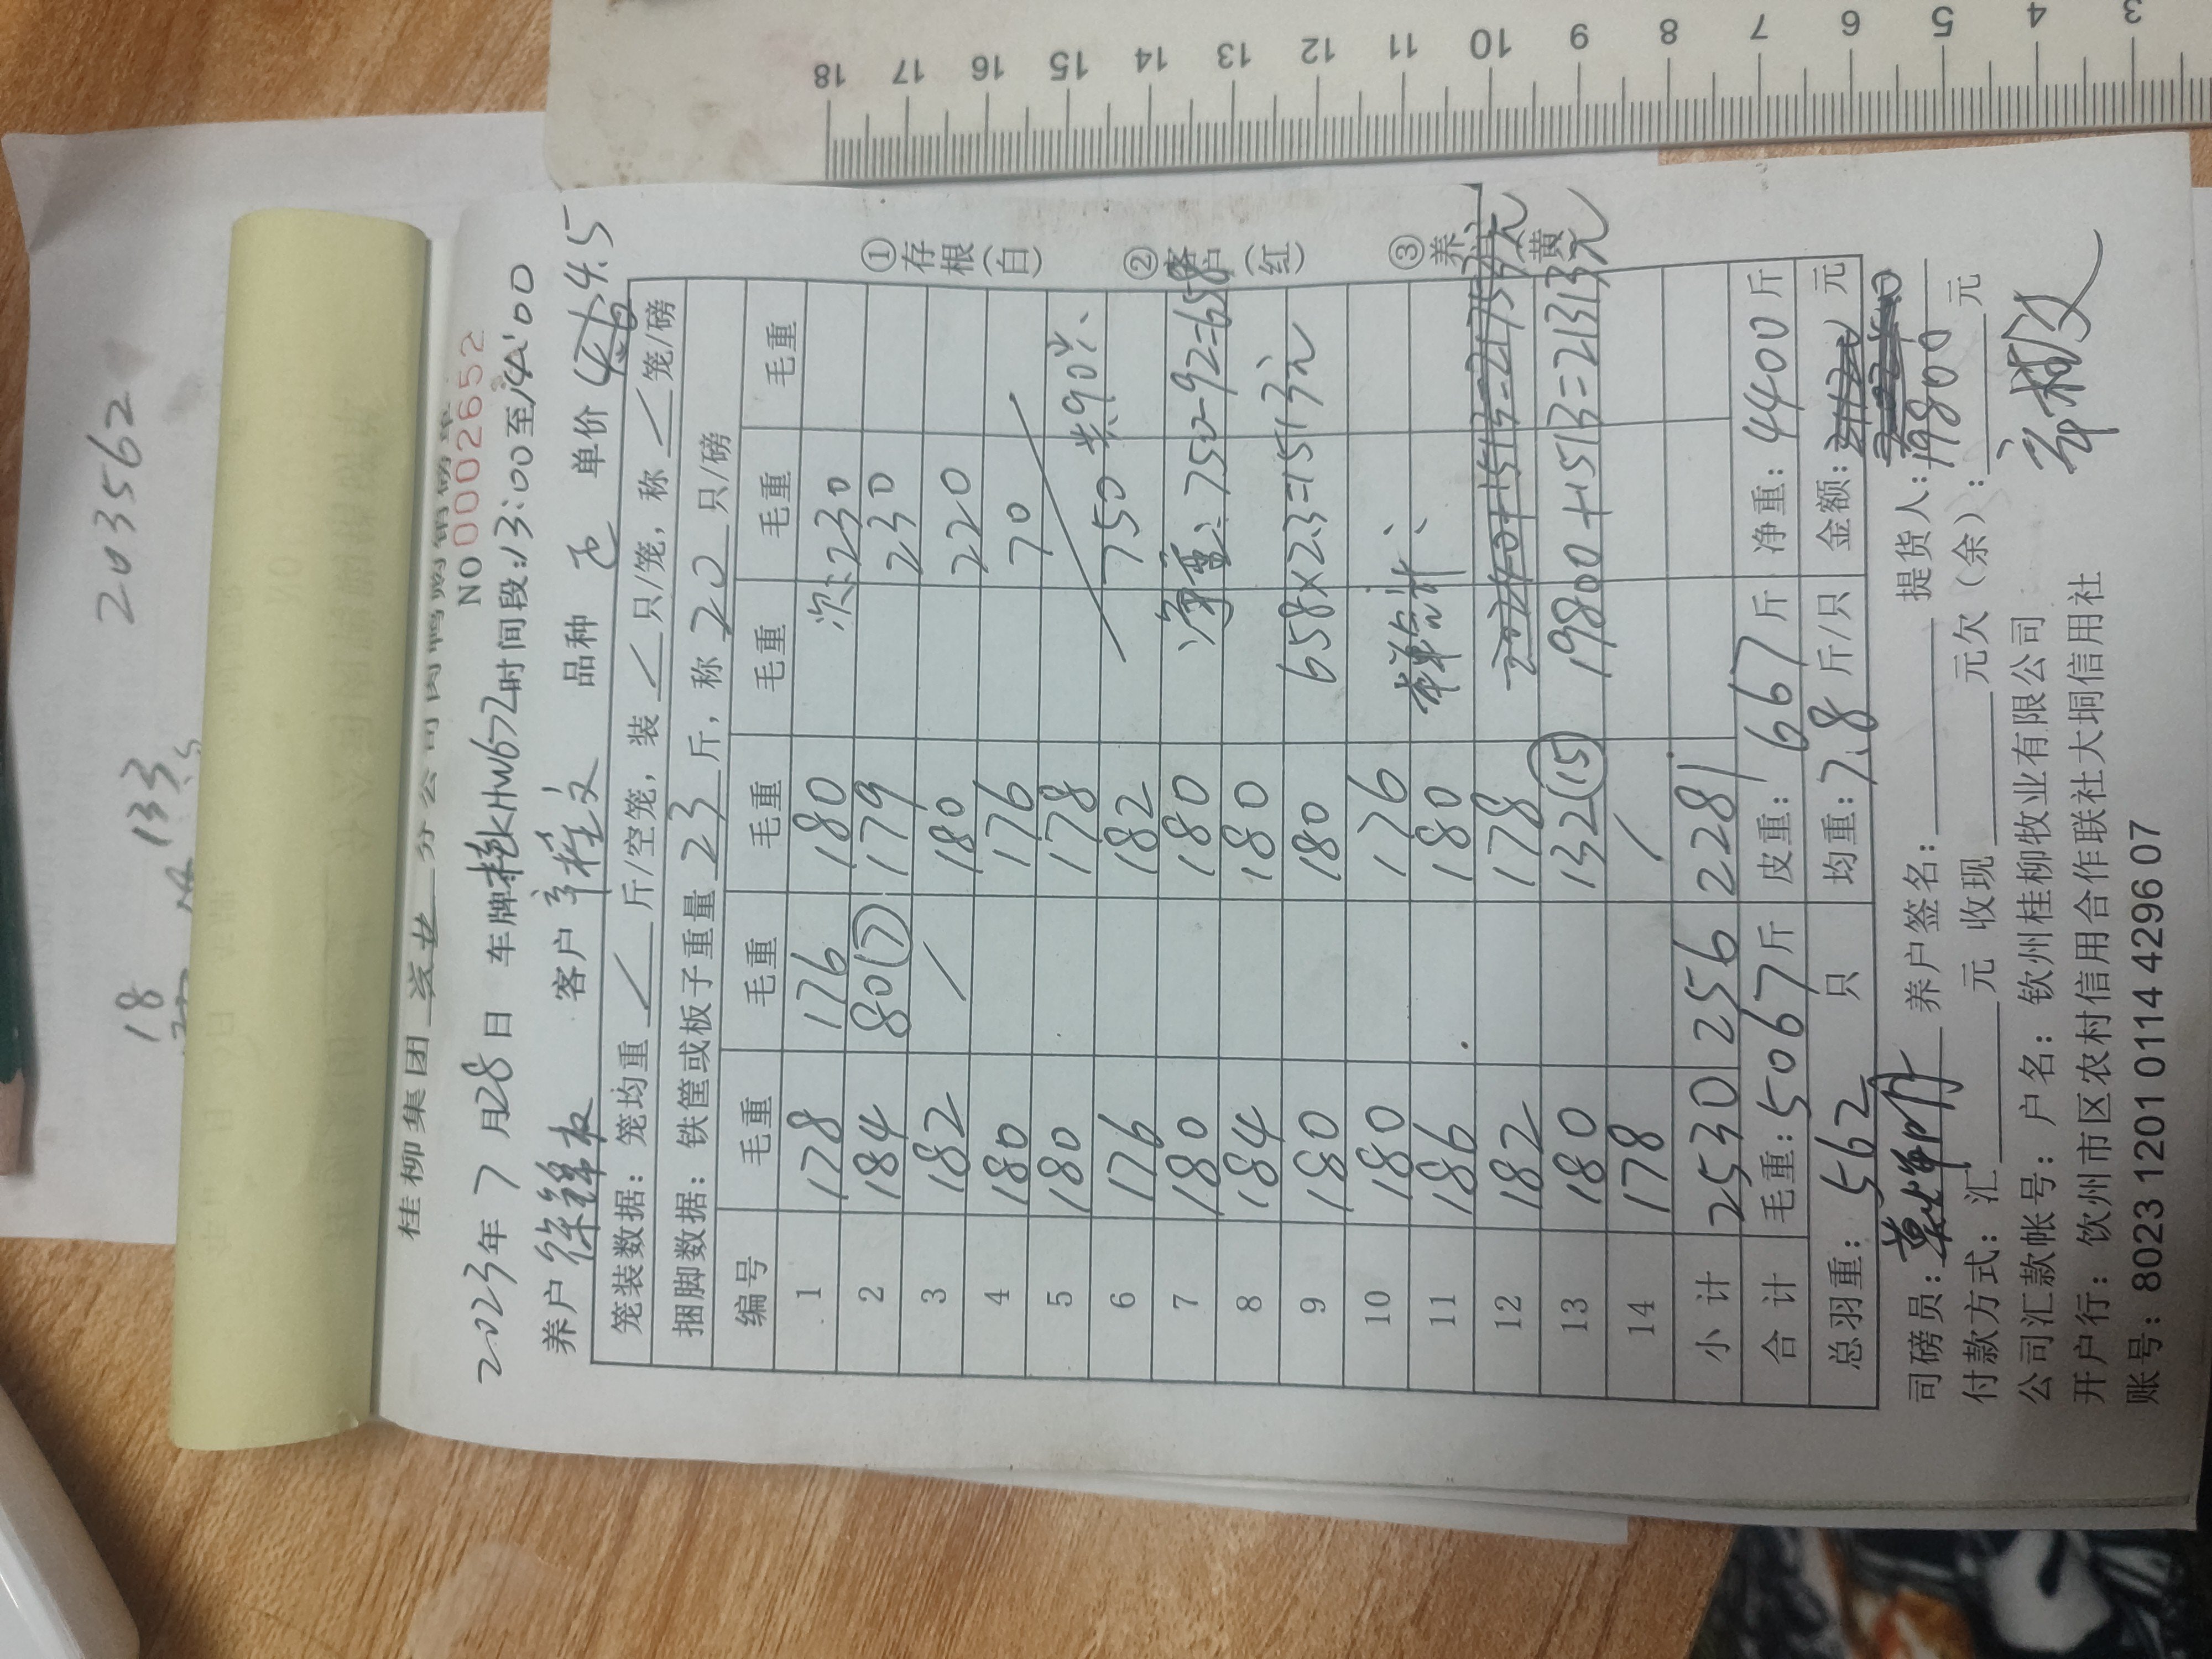 203562
18 133
桂柳集团 分公司肉鸭购销磅单
NO 0002652
2023年7月28日 车牌桂KHW672时间段:13:00至14:00
养户 客户 辛程文 品种 单价 4.5
笼装数据：笼均重 / 斤/空笼，装 / 只/笼，称 / 笼/磅
捆脚数据：铁筐或板子重量 23 斤，称 20 只/磅
编号 毛重 毛重 毛重 毛重 毛重 毛重
1 178 176 180 次:230
2 184 80(7) 179 230
3 182 / 180 220
4 180 176 70
5 180 178
6 176 182 750 共90只
7 180 180 净重:750-92=658
8 184 180
9 180 180 658×2.3=1513元
10 180 176
11 186 180
12 182 178
13 180 132(15) 19800+1513=21313元
14 178 /
小计 2530 256 2281
合计 毛重：5067斤 皮重：667斤 净重：4400斤
总羽重：562 只 均重：7.8斤/只 金额： 元
19800
司磅员： 养户签名： 提货人：
付款方式：汇 元 收现 元欠（余）： 元
公司汇款帐号：户名：钦州桂柳牧业有限公司
开户行：钦州市区农村信用合作联社大垌信用社
账号：8023 1201 0114 4296 07
①存根（白）
②客户（红）
③养户（黄）
18 17 16 15 14 13 12 11 10 9 8 7 6 5 4 3